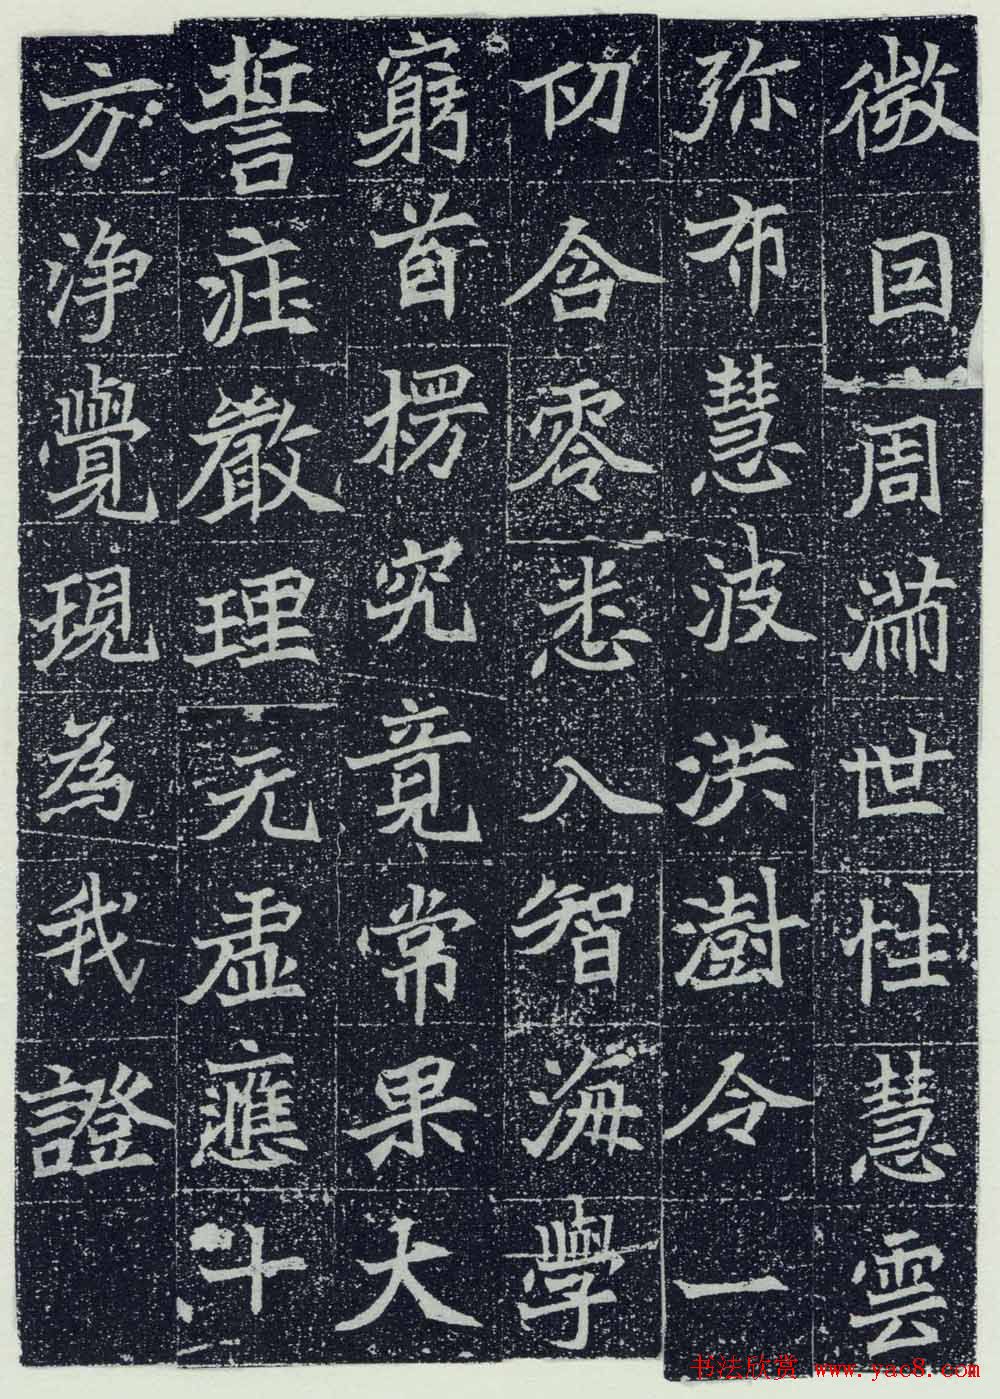 微囙周滿世性慧雲
弥布慧波洪澍令一
切含零悉入智海學
窮首楞究竟常果大
誓庄嚴理无虚應十
方浄覺現為我證
书法欣赏 www.yac8.com